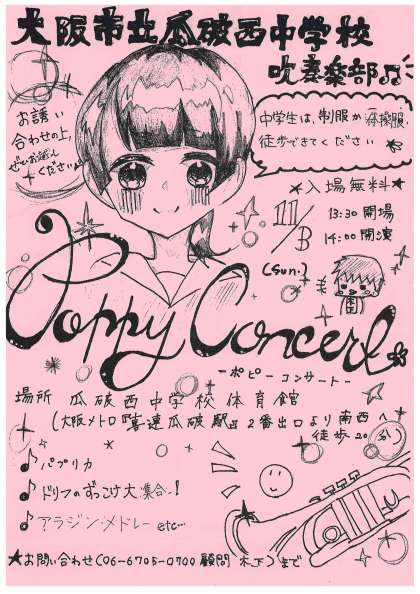 大阪市立瓜破西中学校
吹奏楽部
お誘い
合わせの上、
ぜひお越し
ください
中学生は、制服か体操服、
徒歩できてください
★入場無料★
11/3
(Sun.)
13:30 開場
14:00 開演
Poppy Concert
-ポピーコンサート-
場所 瓜破西中学校体育館
(大阪メトロ『喜連瓜破駅』2番出口より南西へ
徒歩20分)
♪パプリカ
♪ドリフのずっこけ大集合!
♪アラジンメドレー etc…
★お問い合わせ(06-6705-0700 顧問 木下)まで